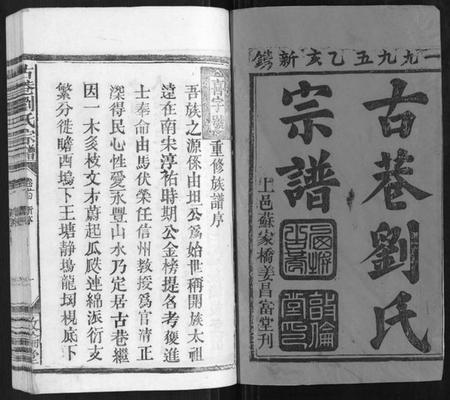 一九九五乙亥新鐫
古巷劉氏
宗譜
上邑蘇家橋姜昌富堂刊
敦倫
堂
重修族譜序
吾族之源係由坦公為始世稱開族太祖
遠在南宋淳祐時期公金榜提名考獲進
士奉命由馬伏榮任信州教授爲官清正
深得民心性愛永豐山水乃定居古巷繼
因一木多枝文才蔚起瓜瓞連綿派衍支
繁分徙瞻西塢下王塘靜塢龍堈梘底下
古巷劉氏宗譜